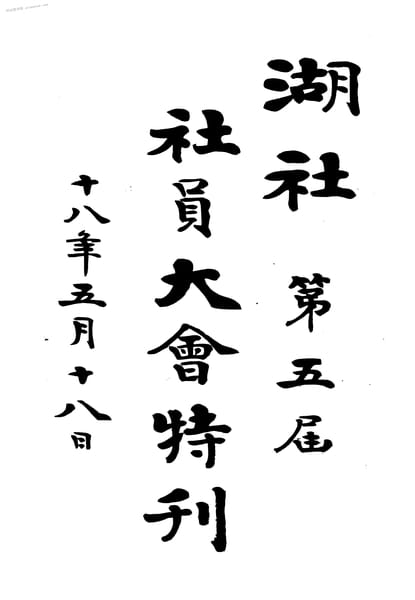 湖社 第五届
社員大會特刊
十八年五月十八日